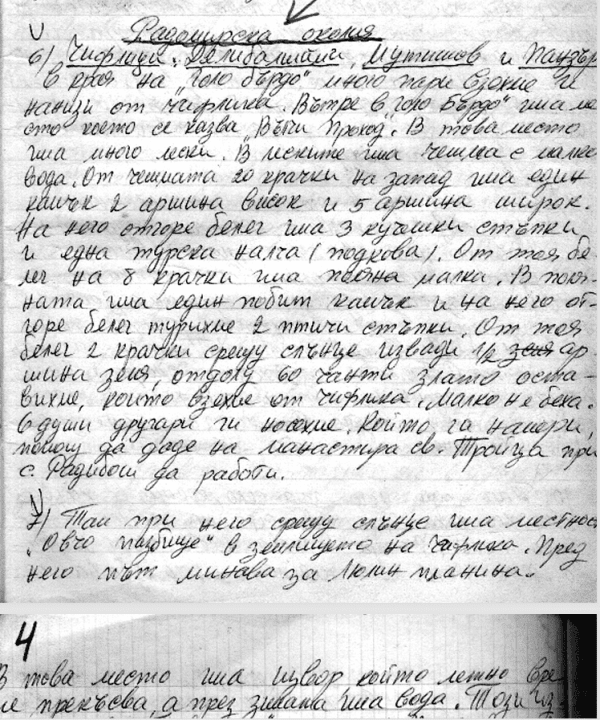 Радомирска околия
6) Чифлици: Делибалтии, Мутишов и Паузър
в края на „голо бърдо" много пари взехме и
нанизи от чифлика. Вътре в „голо Бърдо" има ме-
сто което се казва „Вълчи проход". В това место
има много лески. В леските има чешма с малко
вода. От чешмата 20 крачки на запад има един
камък 2 аршина висок и 5 аршина широк.
На него отгоре белег има 3 кучешки стъпки
и една турска налча (подкова). От тоя бе-
лег на 8 крачки има поляна малка. В поля-
ната има един побит камък и на него от-
горе белег турихме 2 птичи стъпки. От тоя
белег 2 крачки срещу слънце извади 1/2 ар-
шина земя, отдолу 60 чанти злато оста-
вихме, които взехме от чифлика. Малко не беха.
6 души другари ги носехме. Който га намери,
помош да даде на манастира св. Тройца при
с. Радибош да работи.
7) Там при него срещу слънце има местност
„Овчо пладнище" в землището на чифлика. Пред
него път минава за Люлин планина.
4
В това место има извор който летно вре-
ме прекъсва, а през зимата има вода. Този из-